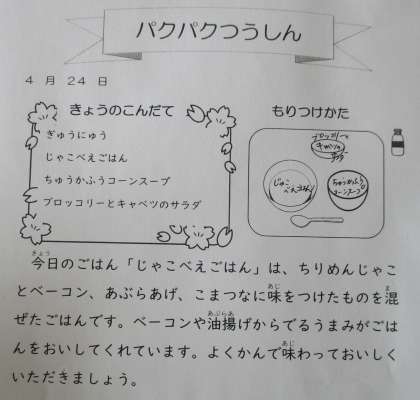 パクパクつうしん
4 月 24 日
きょうのこんだて
ぎゅうにゅう
じゃこべえごはん
ちゅうかふうコーンスープ
ブロッコリーとキャベツのサラダ
もりつけかた
ブロッコリーと
キャベツの
サラダ
じゃこ
べえごはん
ちゅうかふう
コーンスープ
今日のごはん「じゃこべえごはん」は、ちりめんじゃこ
とベーコン、あぶらあげ、こまつなに味をつけたものを混
ぜたごはんです。ベーコンや油揚げからでるうまみがごは
んをおいしてくれています。よくかんで味わっておいしく
いただきましょう。